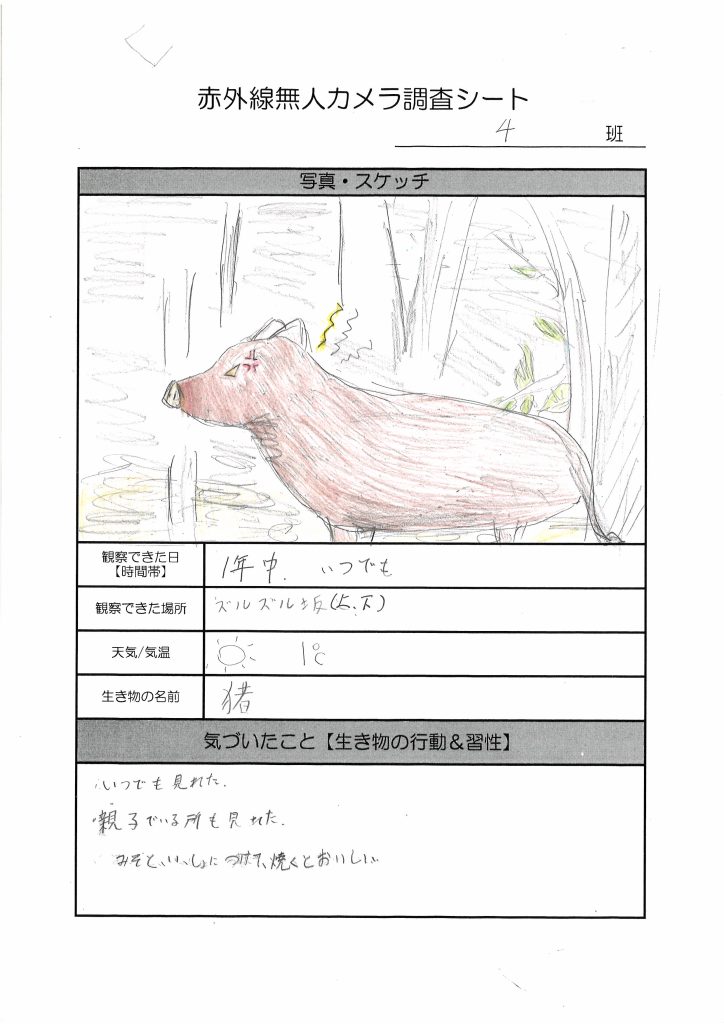 赤外線無人カメラ調査シート
4 班
写真・スケッチ
観察できた日
【時間帯】
1年中、いつでも
観察できた場所
ズルズル坂(上、下)
天気/気温
1℃
生き物の名前
猪
気づいたこと【生き物の行動&習性】
いつでも見れた。
親子でいる所も見れた。
みそと、いっしょにつけて、焼くとおいしい